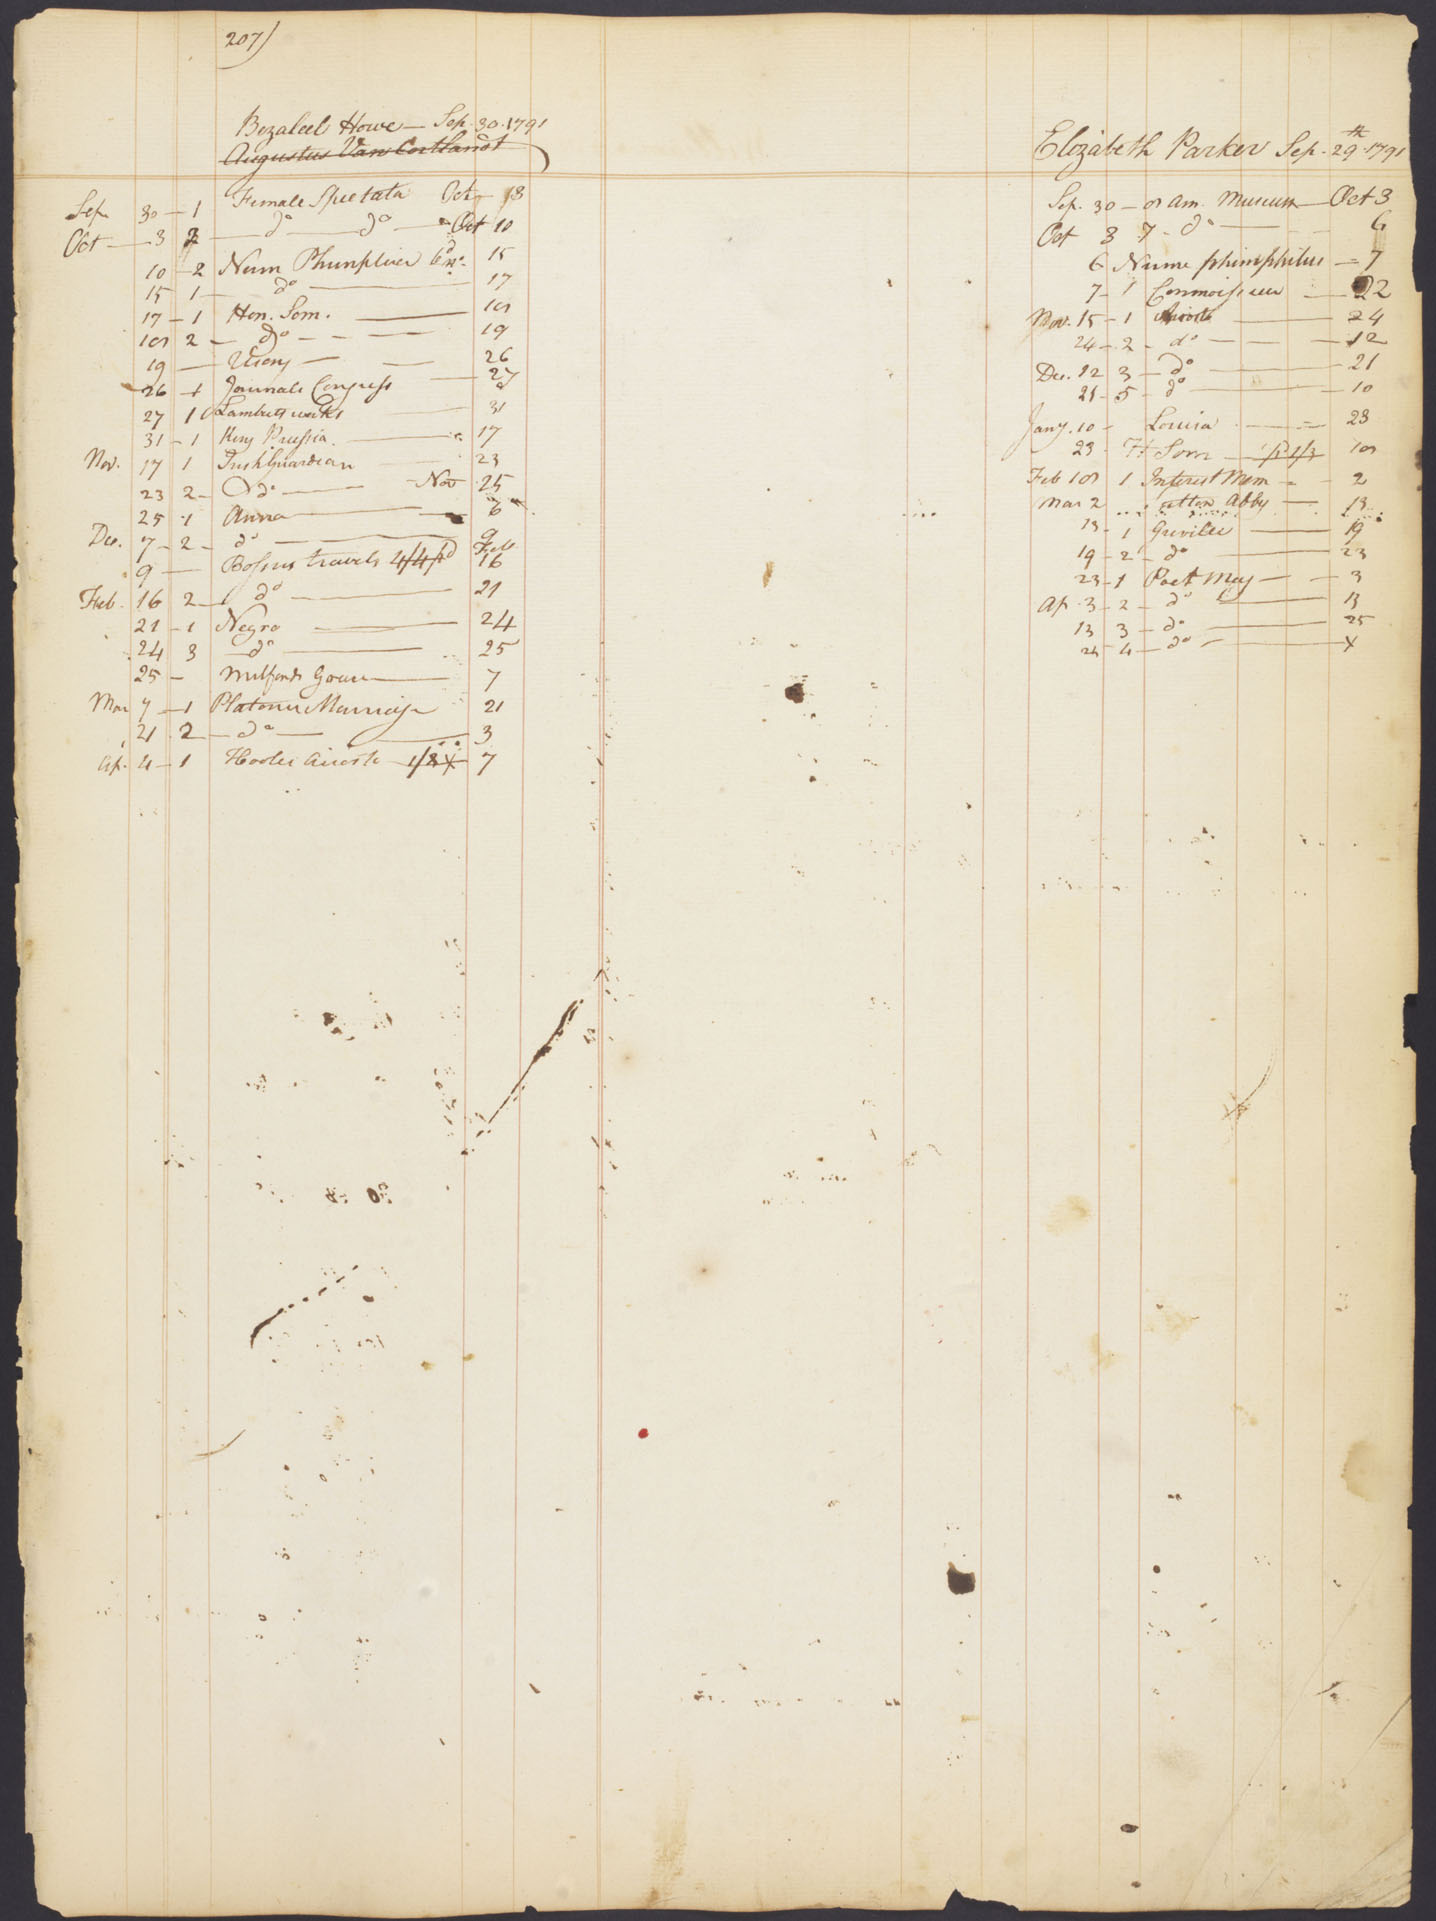 207)
Bezaleel Howe — Sep. 30. 1791
Augustus Van Cortlandt
Sep 30 — 1 Female Spectator Oct 3
Oct — 3 2 — do — do — Oct 10
10 — 2 Num Phumpilius 6 15
15 1 — do — 17
17 — 1 Hon. Som. — 18
18 2 — do — 19
19 — — 26
26 + Journals Congress — 27
27 1 Lamberts works — 31
31 — 1 King Prussia — 17
Nov. 17 1 Irish Guardian — 23
23 2 — do — Nov 25
25 1 Anna — 6
Dec. 7 — 2 — do — 9
9 — Bossus travels 4/4 pd Feb 16
Feb. 16 2 — do — 21
21 — 1 Negro — 24
24 3 — do — 25
25 — — 7
Mar 7 — 1 Platonic Marriage 21
21 2 — do — 3
Ap. 4 — 1 Hooles Ariosto 7
Elizabeth Parker Sep. 29th 1791
Sep. 30 — 8 Am. Museum — Oct 3
Oct 3 7 — do — 6
6 Nume — 7
7 — 1 Connoisseur — 22
Nov. 15 — 1 Ariosto — 24
24 — 2 — do — 12
Dec. 12 3 — do — 21
21 — 5 — do — 10
Jany. 10 — Louisa — 23
23 — H Som — pd 1/3 18
Feb 18 1 Interest Mem — 2
Mar 2 Abby — 13
13 — 1 Greville — 19
19 — 2 — do — 23
23 — 1 Poet — 3
Ap. 3 — 2 — do — 13
13 3 — do — 25
25 — 4 — do — X